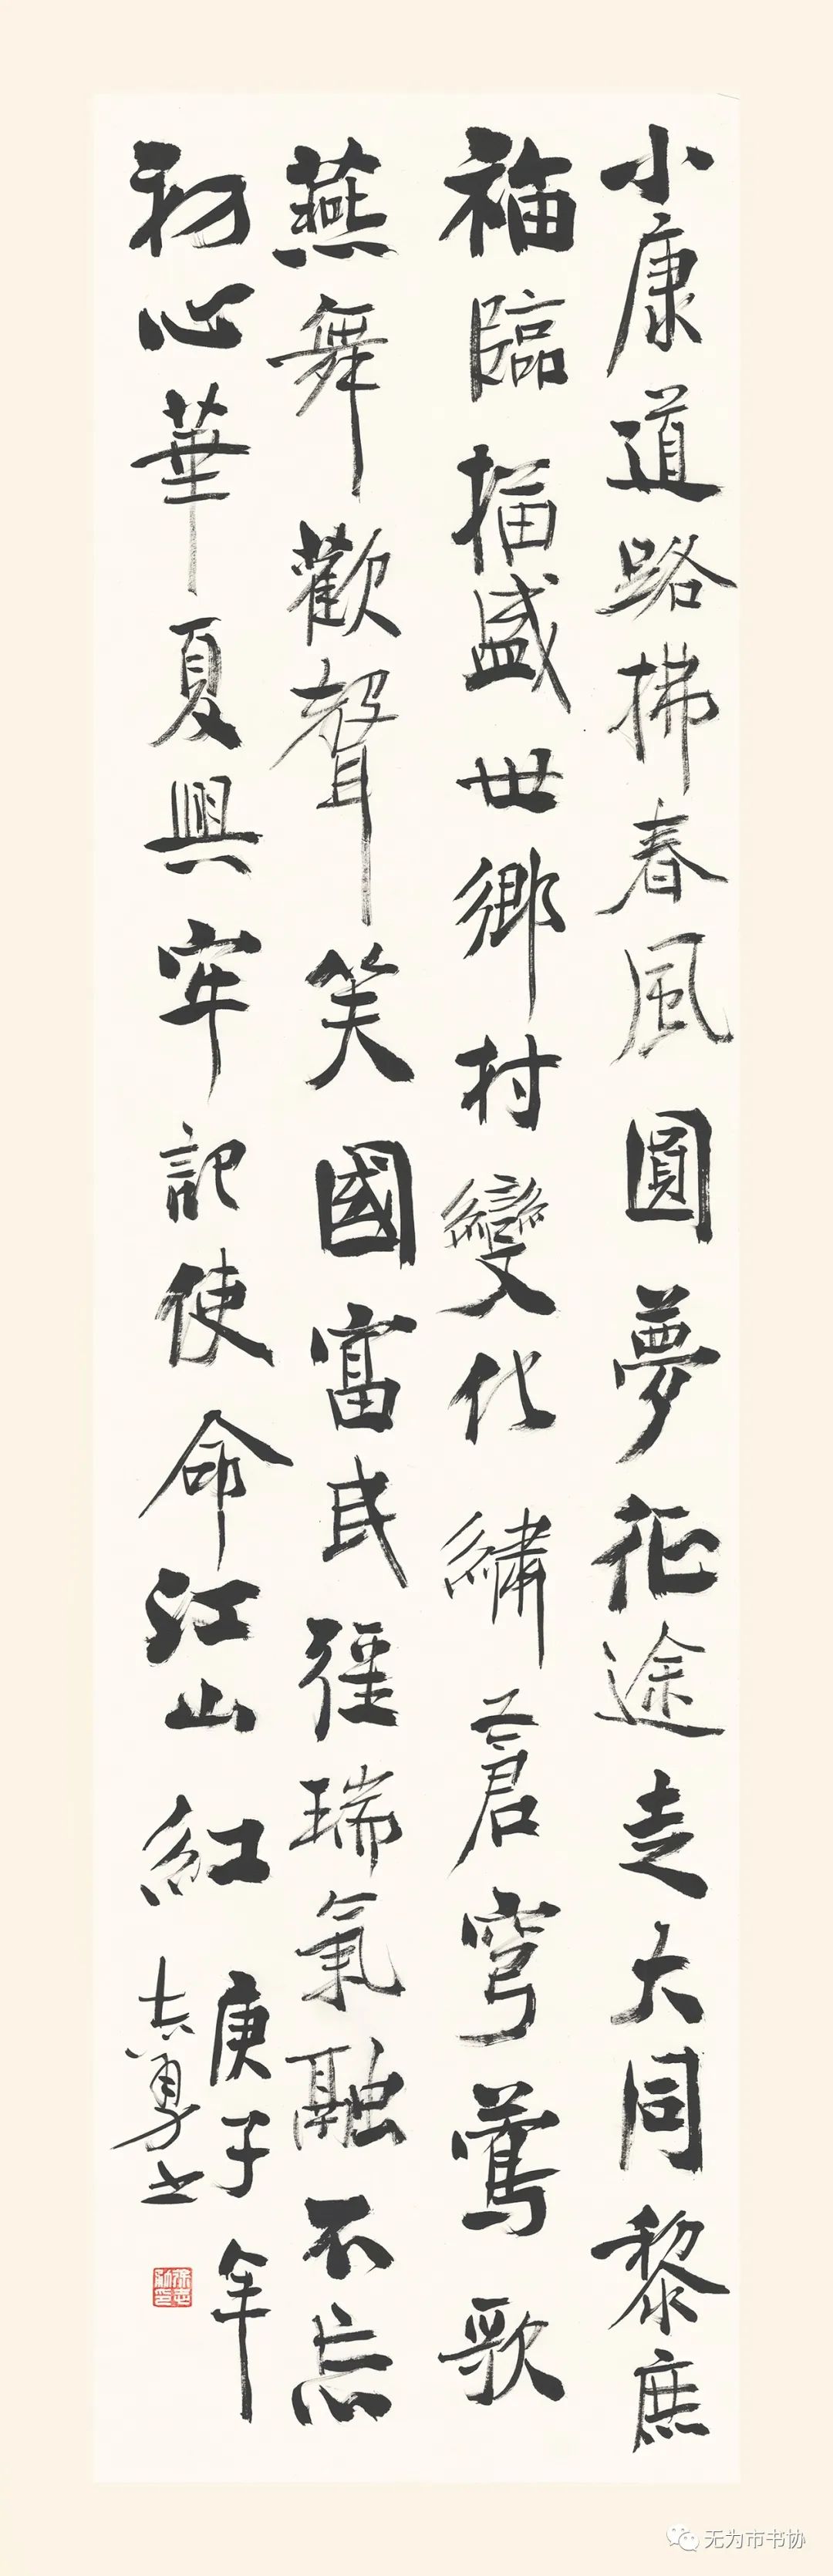 小康道路拂春風圓夢征途走大同黎庶
福臨描盛世鄉村變化繡蒼穹鶯歌
燕舞歡聲笑國富民強瑞氣融不忘
初心華夏興牢記使命江山紅
庚子年
志勇书
无为市书协